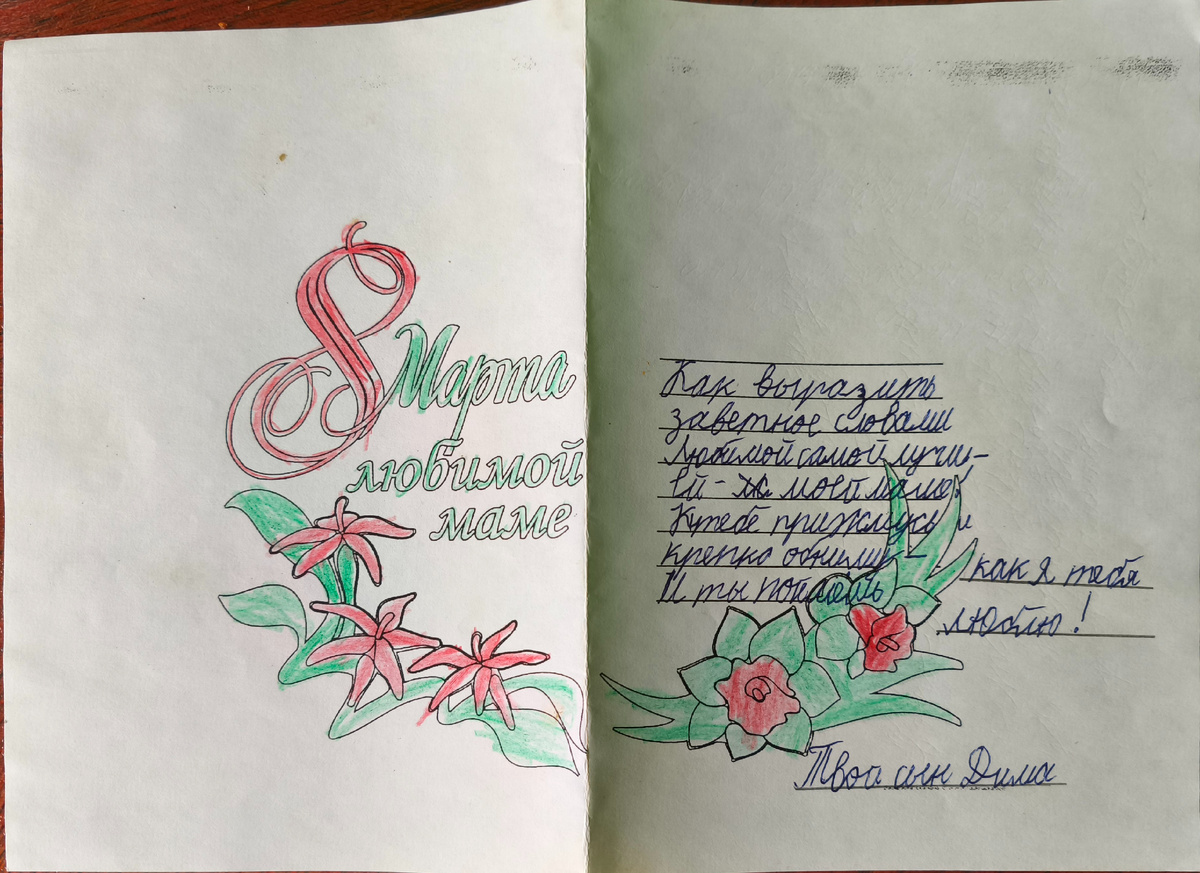 8 Марта
любимой
маме
Как выразить
заветное словами
Любимой самой лучш-
ей - моей маме?
К тебе прижмусь и
крепко обниму -
И ты поймёшь
как я тебя
люблю!
Твой сын Дима